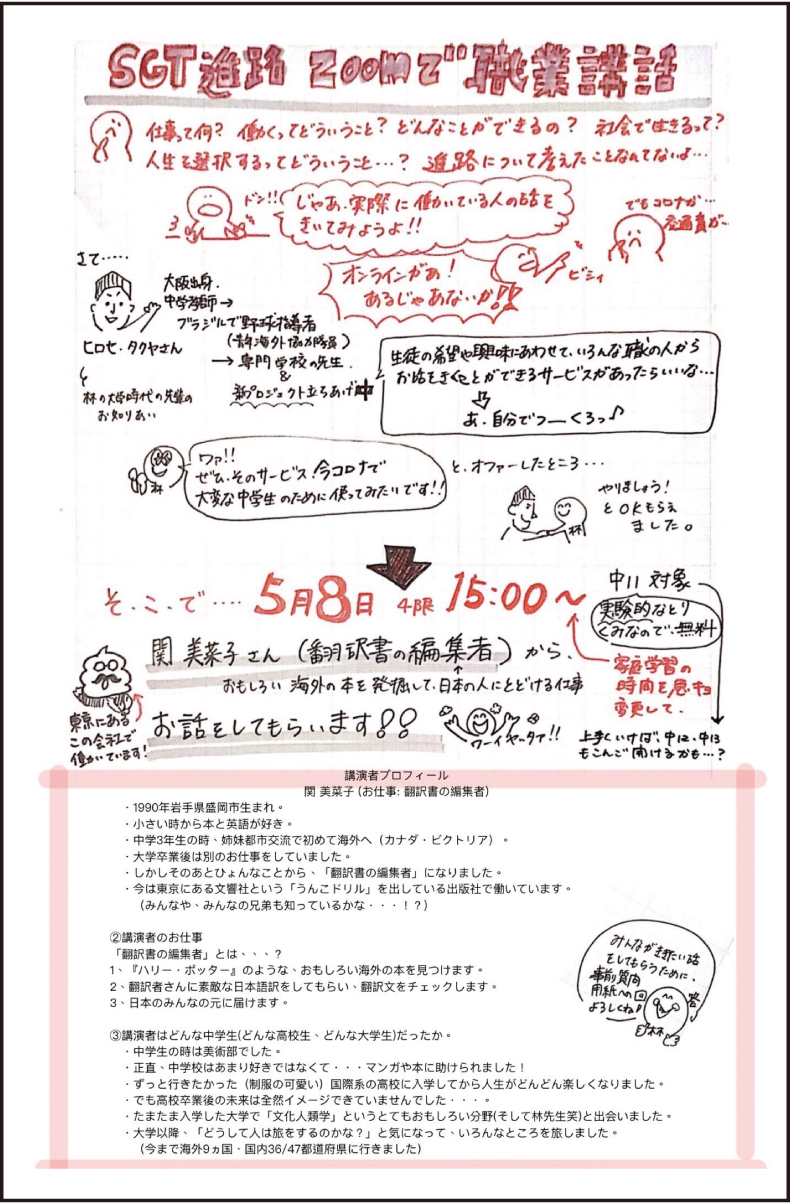 SGT進路 Zoomで職業講話
仕事って何? 働くってどういうこと? どんなことができるの? 社会で生きるって?
人生を選択するってどういうこと…? 進路について考えたことなんてないよ…
ドン!!
じゃあ、実際に働いている人の話を
きいてみようよ!!
でもコロナが…
交通費が…
オンラインがあ!
あるじゃあないか!!
ビシィ
さて……
大阪出身.
中学教師→
ブラジルで野球指導者
(青年海外協力隊員)
→ 専門学校の先生.
&
新プロジェクト立ちあげ中
ヒロセ・タクヤさん
林の大学時代の先輩の
お知りあい
生徒の希望や興味にあわせて、いろんな職の人から
お話をきくことができるサービスがあったらいいな…
あ、自分でつーくろっ♪
ワァ!!
ぜひ、そのサービス、今コロナで
大変な中学生のために使ってみたいです!!
林
と、オファーしたところ…
やりましょう!
とOKもらえ
ました。
林
そ.こ.で…. 5月8日 4限 15:00〜
中1 対象
実験的なとり
くみなので、無料
家庭学習の
時間を急きょ
変更して.
関 美菜子さん (翻訳書の編集者) から、
おもしろい 海外の本を発掘して、日本の人にとどける仕事
お話をしてもらいます!!
ワーイヤッタァ!!
東京にある
この会社で
働いています!
上手くいけば、中2、中3
もこんご開けるかも…?
講演者プロフィール
関 美菜子 (お仕事: 翻訳書の編集者)
・1990年岩手県盛岡市生まれ。
・小さい時から本と英語が好き。
・中学3年生の時、姉妹都市交流で初めて海外へ(カナダ・ビクトリア)。
・大学卒業後は別のお仕事をしていました。
・しかしそのあとひょんなことから、「翻訳書の編集者」になりました。
・今は東京にある文響社という「うんこドリル」を出している出版社で働いています。
(みんなや、みんなの兄弟も知っているかな・・・!?)
②講演者のお仕事
「翻訳書の編集者」とは、、、?
1、『ハリー・ポッター』のような、おもしろい海外の本を見つけます。
2、翻訳者さんに素敵な日本語訳をしてもらい、翻訳文をチェックします。
3、日本のみんなの元に届けます。
みんながききたい話
をしてもらうために、
事前質問
用紙への回答
よろしくね!
林
③講演者はどんな中学生(どんな高校生、どんな大学生)だったか。
・中学生の時は美術部でした。
・正直、中学校はあまり好きではなくて・・・マンガや本に助けられました!
・ずっと行きたかった(制服の可愛い)国際系の高校に入学してから人生がどんどん楽しくなりました。
・でも高校卒業後の未来は全然イメージできていませんでした・・・。
・たまたま入学した大学で「文化人類学」というとてもおもしろい分野(そして林先生笑)と出会いました。
・大学以降、「どうして人は旅をするのかな?」と気になって、いろんなところを旅しました。
(今まで海外9ヵ国・国内36/47都道府県に行きました)